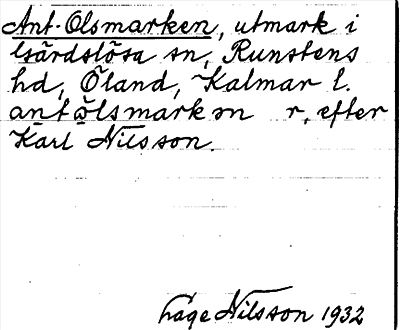 Ant-Olsmarken, utmark i
Gärdslösa sn, Runstens
hd, Öland, Kalmar l.
antɷ̀lsmarkən r, efter
Karl Nilsson.
Åage Nilsson 1932